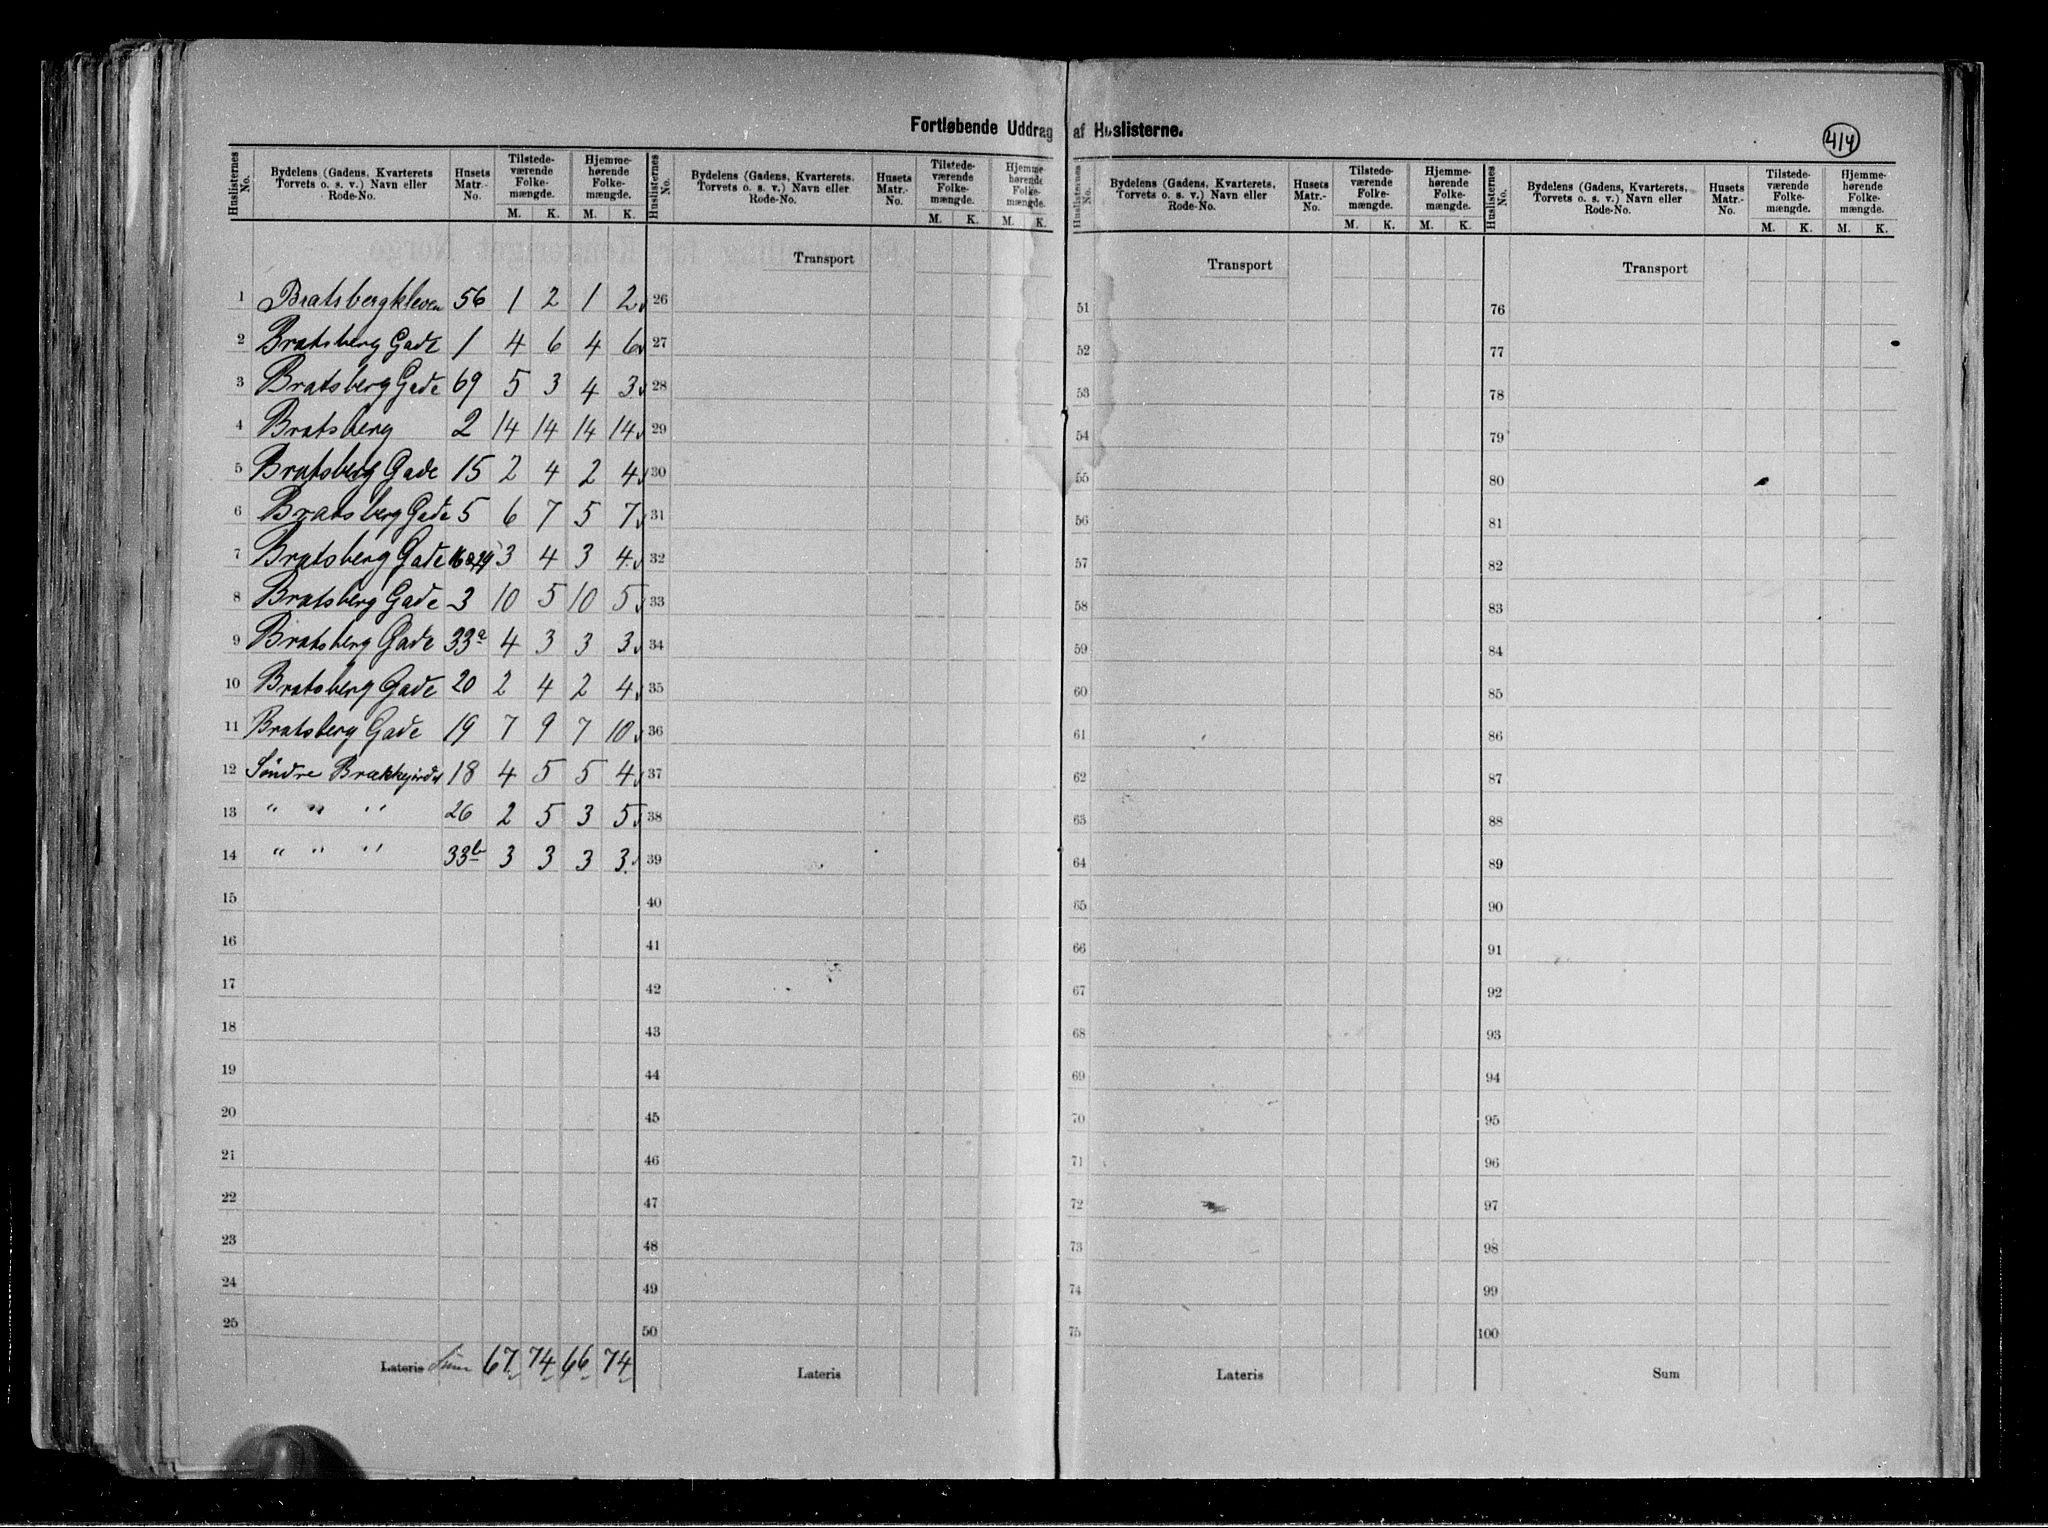 Fortløbende Uddrag af Huslisterne.
414
Huslisternes No. | Bydelens (Gadens, Kvarterets, Torvets o. s. v.) Navn eller Rode-No. | Husets Matr.-No. | Tilstedeværende Folkemængde. M. K. | Hjemmehørende Folkemængde. M. K.
1 Bratsbergkleven 56 1 2 1 2
2 Bratsberg Gade 1 4 6 4 6
3 Bratsberg Gade 69 5 3 4 3
4 Bratsberg 2 14 14 14 14
5 Bratsberg Gade 15 2 4 2 4
6 Bratsberg Gade 5 6 7 5 7
7 Bratsberg Gade 3 4 3 4
8 Bratsberg Gade 3 10 5 10 5
9 Bratsberg Gade 33a 4 3 3 3
10 Bratsberg Gade 20 2 4 2 4
11 Bratsberg Gade 19 7 9 7 10
12 Söndre 18 4 5 5 4
13 " " " 26 2 5 3 5
14 " " " 33b 3 3 3 3
15
16
17
18
19
20
21
22
23
24
25
Lateris Sum 67 74 66 74
Huslisternes No. | Bydelens (Gadens, Kvarterets, Torvets o. s. v.) Navn eller Rode-No. | Husets Matr.-No. | Tilstedeværende Folkemængde. M. K. | Hjemmehørende Folkemængde. M. K.
Transport
26
27
28
29
30
31
32
33
34
35
36
37
38
39
40
41
42
43
44
45
46
47
48
49
50
Lateris
Huslisternes No. | Bydelens (Gadens, Kvarterets, Torvets o. s. v.) Navn eller Rode-No. | Husets Matr.-No. | Tilstedeværende Folkemængde. M. K. | Hjemmehørende Folkemængde. M. K.
Transport
51
52
53
54
55
56
57
58
59
60
61
62
63
64
65
66
67
68
69
70
71
72
73
74
75
Lateris
Huslisternes No. | Bydelens (Gadens, Kvarterets, Torvets o. s. v.) Navn eller Rode-No. | Husets Matr.-No. | Tilstedeværende Folkemængde. M. K. | Hjemmehørende Folkemængde. M. K.
Transport
76
77
78
79
80
81
82
83
84
85
86
87
88
89
90
91
92
93
94
95
96
97
98
99
100
Sum